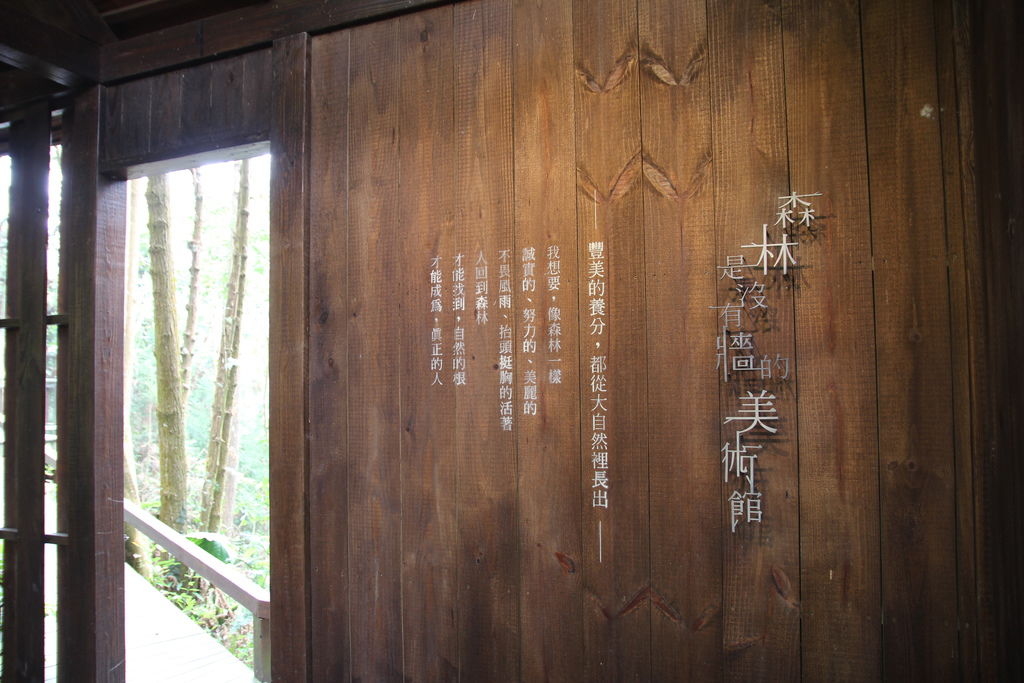 森林是沒有牆的美術館
—豐美的養分，都從大自然裡長出—
我想要，像森林一樣
誠實的、努力的、美麗的
不畏風雨、抬頭挺胸的活著
人回到森林
才能找到，自然的根
才能成為，真正的人